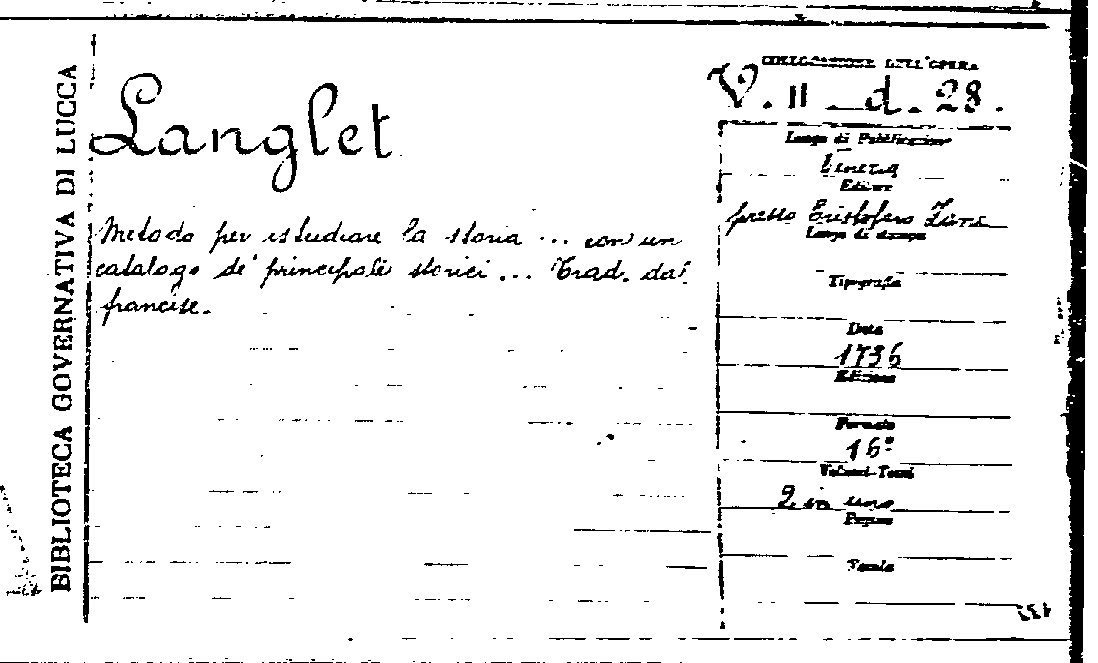 BIBLIOTECA GOVERNATIVA DI LUCCA
Langlet
Metodo per istudiare la storia ... con un
catalogo de' principali storici ... Trad. dal
francese.
COLLOCAZIONE DELL'OPERA
V. II - d. 28.
Luogo di Pubblicazione
Editore
presso Cristoforo Zane
Luogo di stampa
Tipografia
Data
1736
Edizione
Formato
16º
Volumi-Tomi
2 in uno
Pagine
Tavole